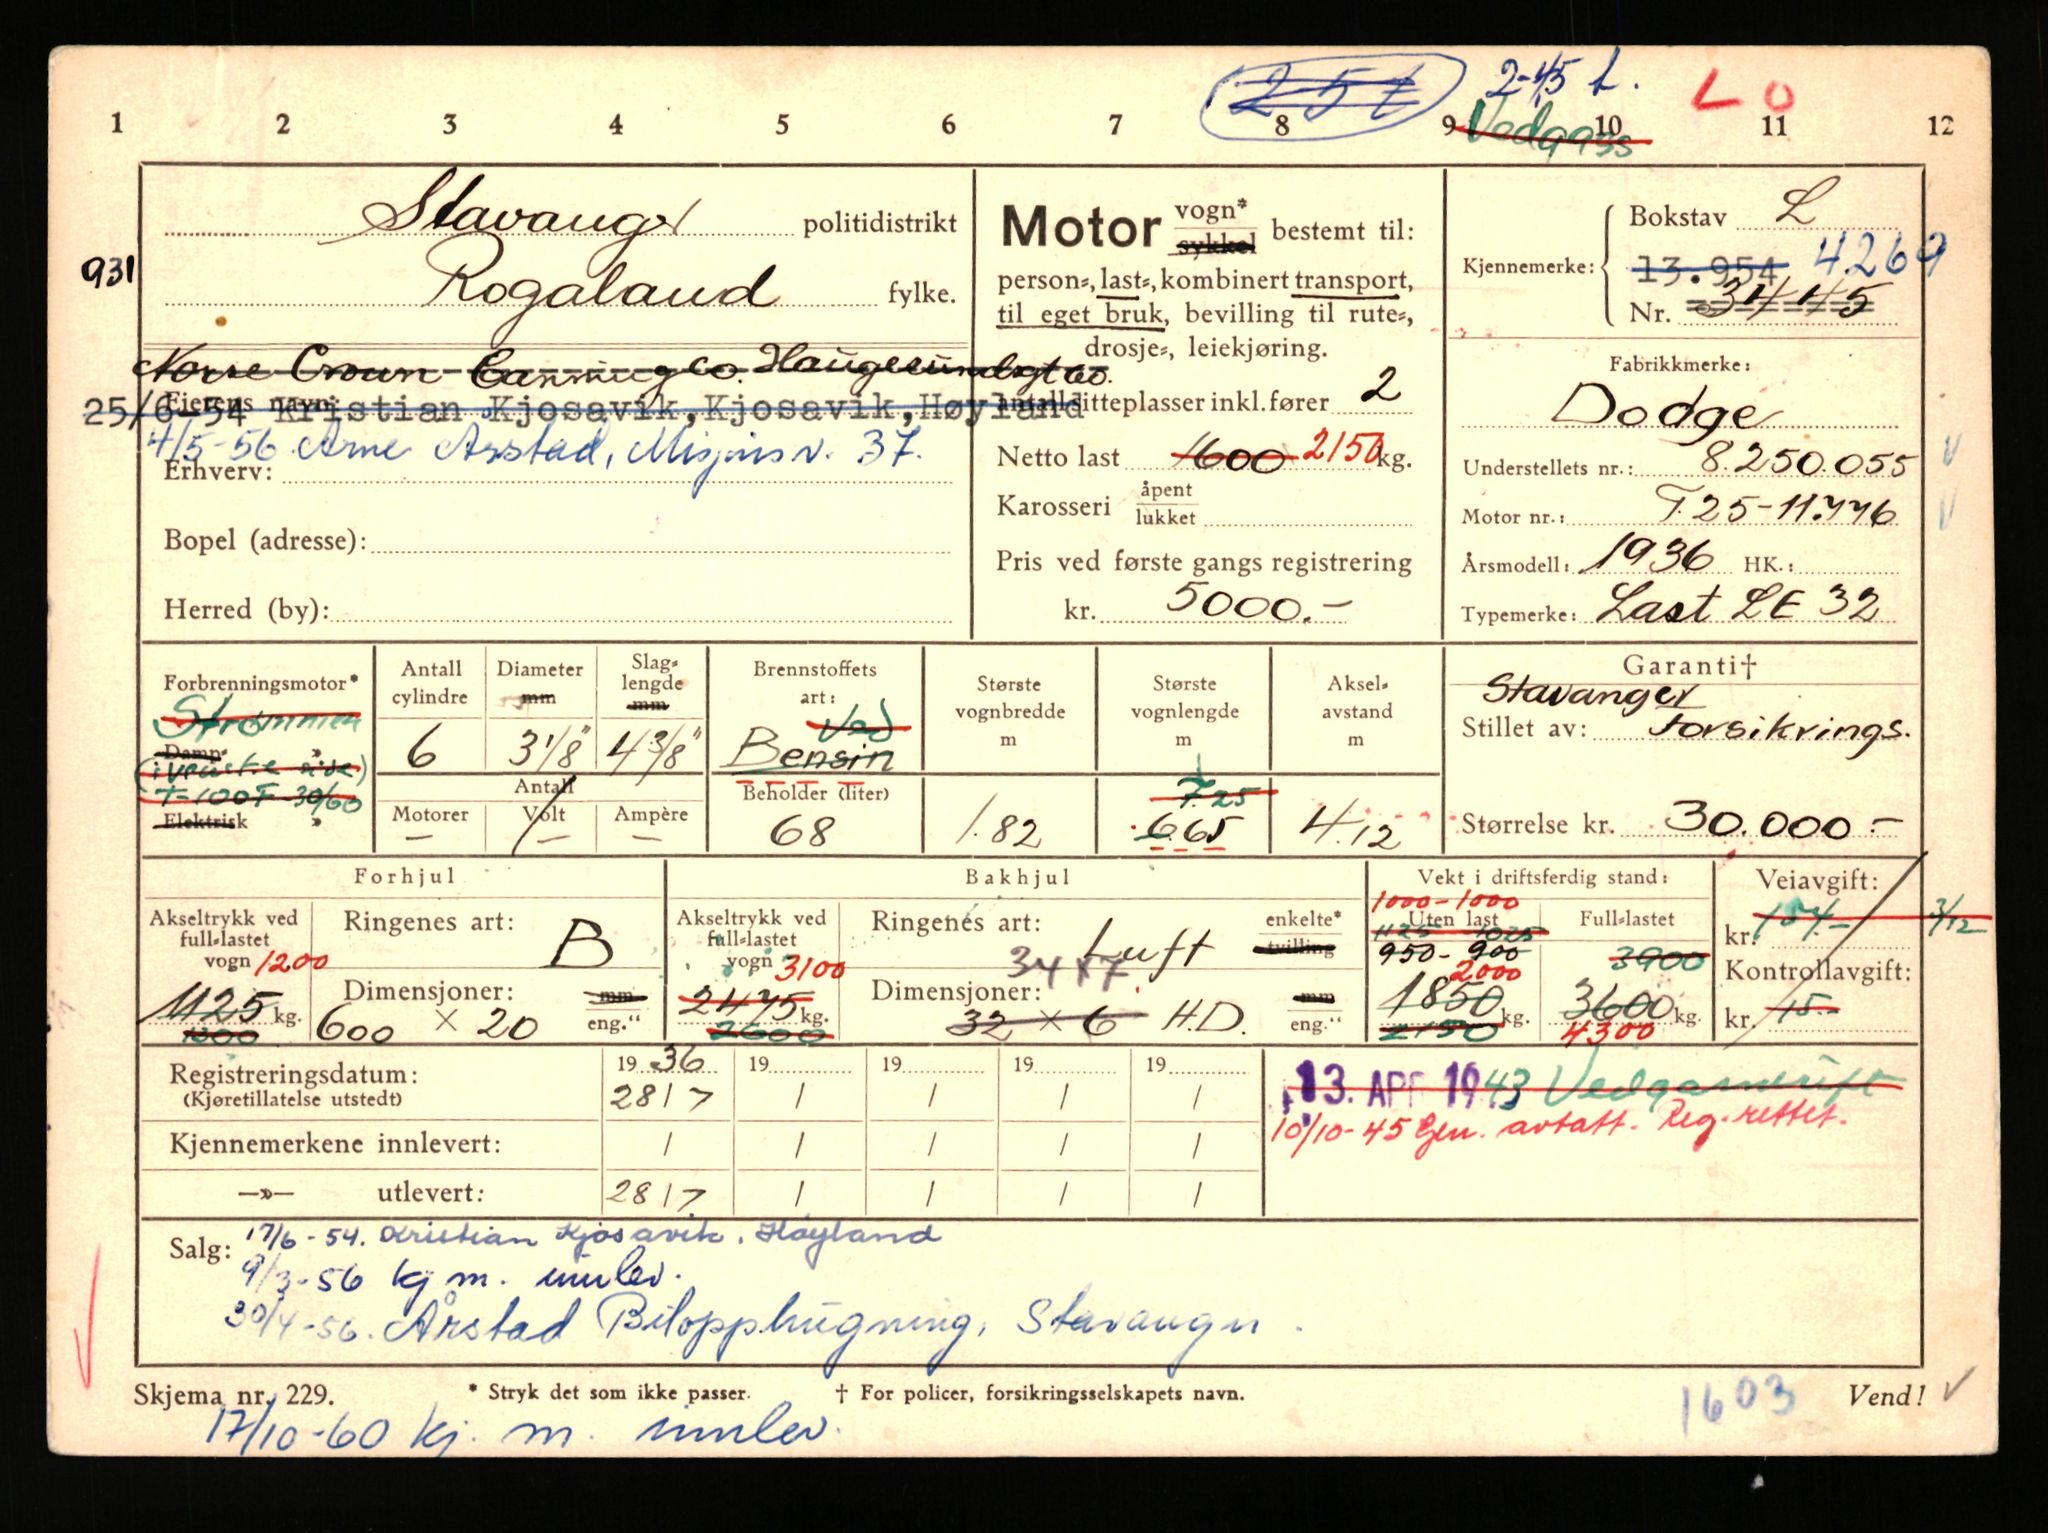 251 2-45 L. L O
1 2 3 4 5 6 7 8 9 10 11 12
Vedgass
Stavanger politidistrikt
931 Rogaland fylke.
Norse Crown Canning Co. Haugesundsgt 60.
Eierens navn:
25/6-54 Kristian Kjosavik, Kjosavik, Høyland
4/5-56 Arne Årstad, Misjonsv. 37.
Erhverv:
Bopel (adresse):
Herred (by):
Motor vogn* sykkel bestemt til:
person-, last-, kombinert transport,
til eget bruk, bevilling til rute-,
drosje-, leiekjøring.
antall sitteplasser inkl. fører 2
Netto last 1600 2150 kg.
Karosseri åpent lukket
Pris ved første gangs registrering
kr. 5000.-
Bokstav L
Kjennemerke: 13.954 4269
Nr. 3445
Fabrikkmerke:
Dodge
Understellets nr.: 8.250.055
Motor nr.: T.25-11.446
Årsmodell: 1936 HK.:
Typemerke: Last LE 32
Forbrenningsmotor*
Strømmen
Damp- »
T-100F-30/60
Elektrisk »
Antall cylindre 6
Diameter mm 3 1/8"
Slag-lengde mm 4 3/8"
Antall
Motorer Volt Ampère
— — —
Brennstoffets art: Ved
Bensin
Beholder (liter)
68
Største vognbredde m
1.82
Største vognlengde m
7.25
6.65
Aksel-avstand m
4.12
Garanti†
Stavanger
Stillet av: Forsikrings.
Størrelse kr. 30.000.-
Forhjul
Akseltrykk ved full-lastet vogn 1200
1125 kg.
Ringenes art: B
Dimensjoner: mm
600 × 20 eng."
Bakhjul
Akseltrykk ved full-lastet vogn 3100
2475 kg.
2600
Ringenes art: Luft enkelte* tvilling
34x7
Dimensjoner: mm
32 × 6 H.D. eng."
Vekt i driftsferdig stand:
1000-1000
Uten last Full-lastet
1125 1025
950-900 3900
2000
1850 kg. 3600 kg.
2150 4300
Veiavgift:
kr. 3/12
Kontrollavgift:
kr. 15.-
Registreringsdatum: 19 36 19 19 19 19
(Kjøretillatelse utstedt) 28/7 / / / /
Kjennemerkene innlevert: / / / / /
—»— utlevert: 28/7 / / / /
13. APR 1943 Vedgassdrift
10/10-45 Gen. avtatt. Reg. rettet.
Salg: 17/6-54. Kristian Kjosavik, Høyland
9/3-56 kj m. innlev.
30/4-56. Årstad Bilopphugning, Stavanger.
Skjema nr. 229. * Stryk det som ikke passer. † For policer, forsikringsselskapets navn. 1603 Vend!
17/10-60 kj. m. innlev.